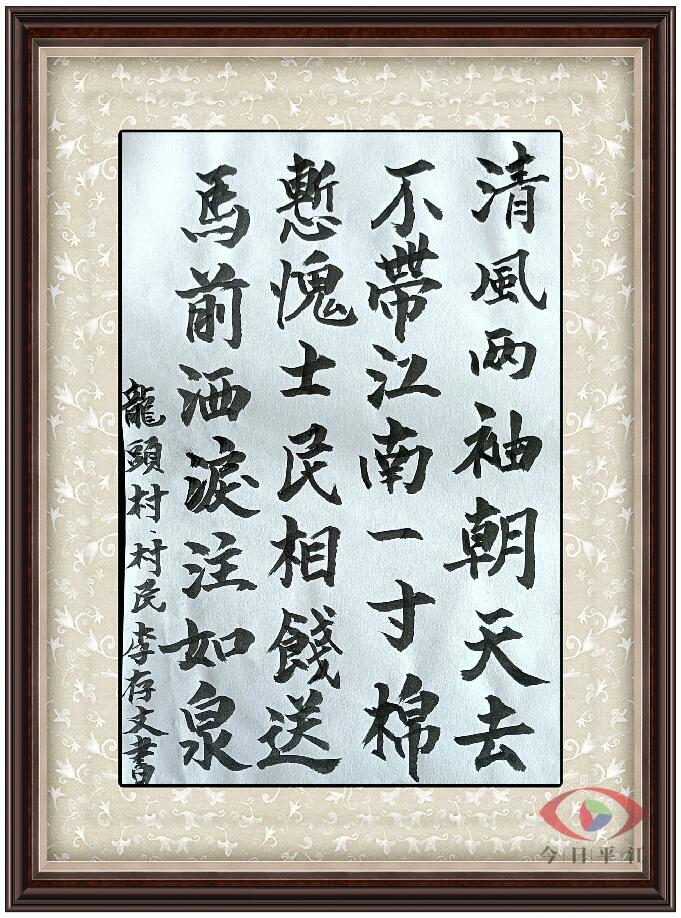 清風两袖朝天去
不帶江南一寸棉
慙愧士民相餞送
馬前洒淚注如泉
龍頭村村民李存文書
今日平江